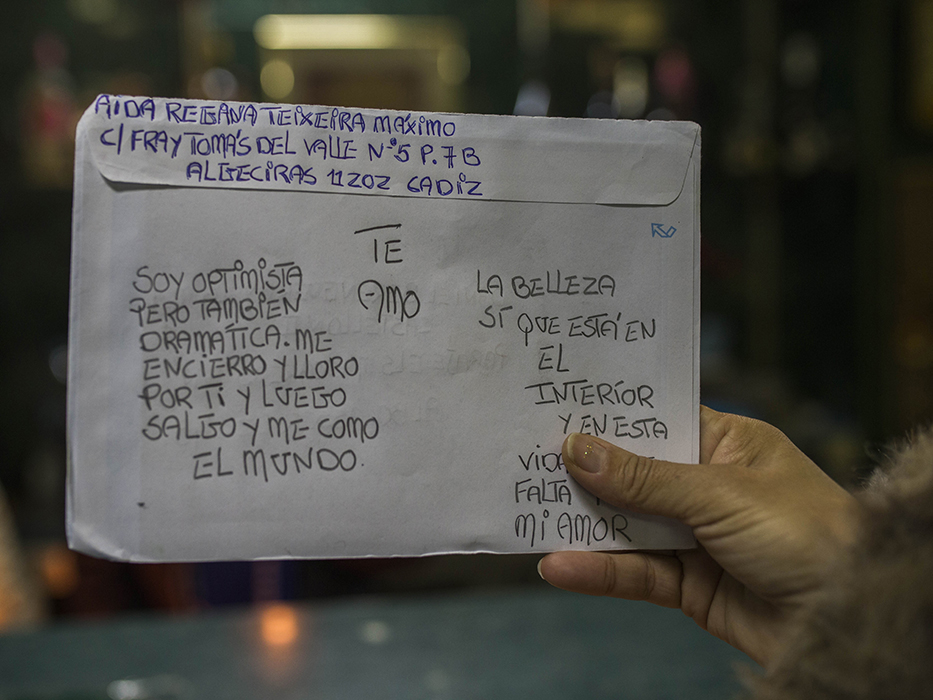 AIDA REGANA TEIXEIRA MÁXIMO
C/ FRAY TOMÁS DEL VALLE Nº5 P.7B
ALGECIRAS 11202 CADIZ
TE
AMO
SOY OPTIMISTA
PERO TAMBIÉN
DRAMATICA. ME
ENCIERRO Y LLORO
POR TI Y LUEGO
SALGO Y ME COMO
EL MUNDO.
LA BELLEZA
SÍ QUE ESTÁ EN
EL
INTERIOR
Y EN ESTA
FALTA
MI AMOR